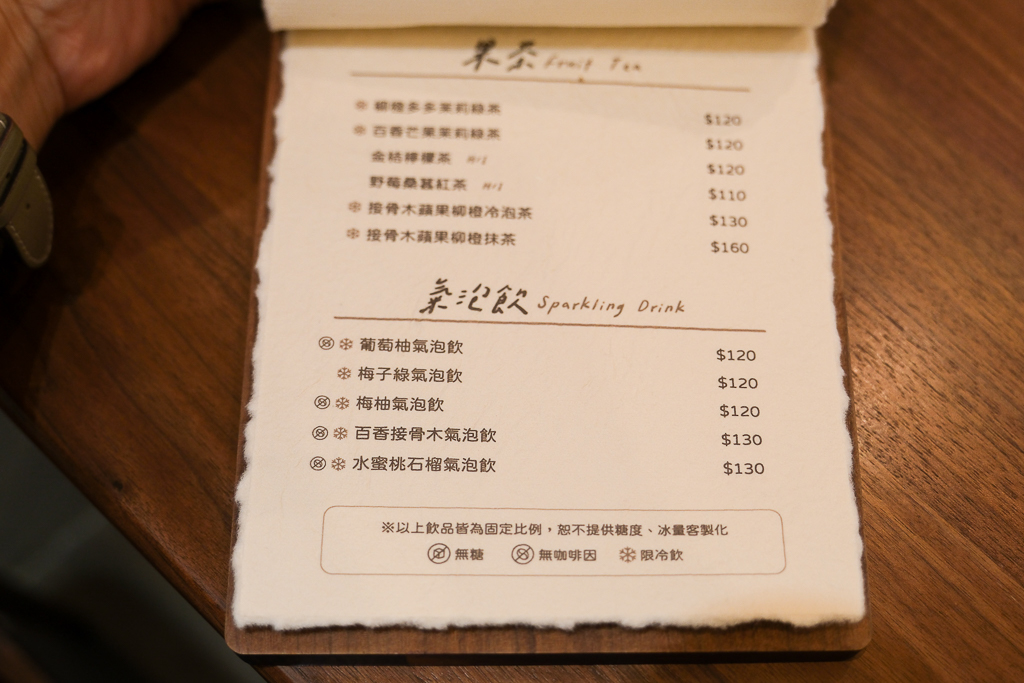 果茶 Fruit Tea
❄ 柳橙多多茉莉綠茶 $120
❄ 百香芒果茉莉綠茶 $120
金桔檸檬茶 H/I $120
野莓桑葚紅茶 H/I $110
❄ 接骨木蘋果柳橙冷泡茶 $130
❄ 接骨木蘋果柳橙抹茶 $160
氣泡飲 Sparkling Drink
❄ 葡萄柚氣泡飲 $120
❄ 梅子綠氣泡飲 $120
❄ 梅柚氣泡飲 $120
❄ 百香接骨木氣泡飲 $130
❄ 水蜜桃石榴氣泡飲 $130
※以上飲品皆為固定比例，恕不提供糖度、冰量客製化
無糖 無咖啡因 ❄ 限冷飲